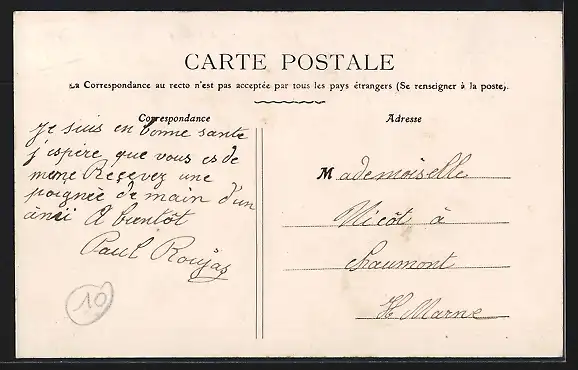 CARTE POSTALE
La Correspondance au recto n'est pas acceptée par tous les pays étrangers (Se renseigner à la poste).
Correspondance
Je suis en bonne santé
j'espère que vous es de
meme Reçevez une
poignée de main d'un
ámii A bientôt
Paul Roujas
10
Adresse
Mademoiselle
Nicôt à
chaumont
Hte Marne